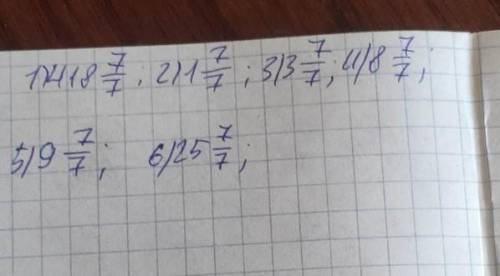 1)418 7/7; 2)1 7/7; 3)3 7/7; 4)8 7/7;
5)9 7/7; 6)25 7/7;